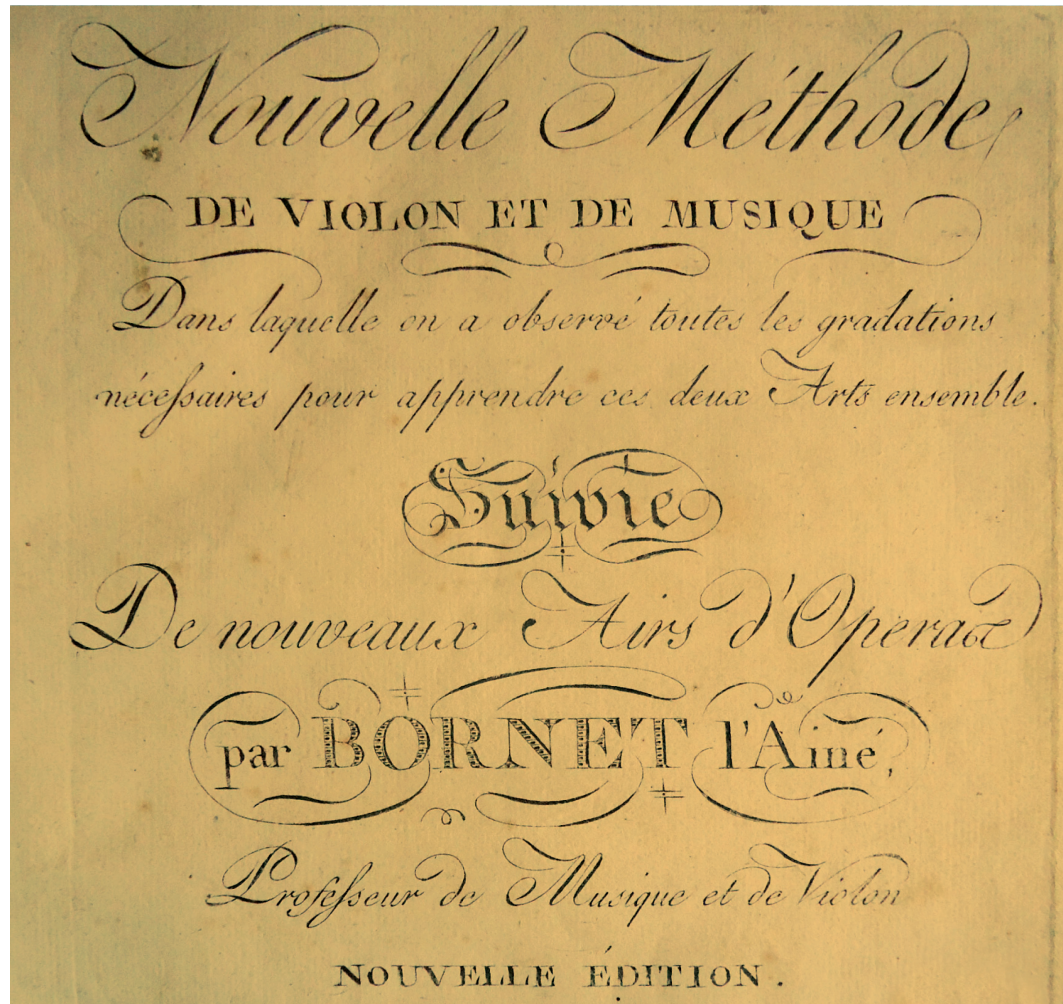 Nouvelle Méthode
DE VIOLON ET DE MUSIQUE
Dans laquelle on a observé toutes les gradations
nécessaires pour apprendre ces deux Arts ensemble.
Suivie
De nouveaux Airs d'Opera &c
par BORNET l'Ainé,
Professeur de Musique et de Violon
NOUVELLE ÉDITION.